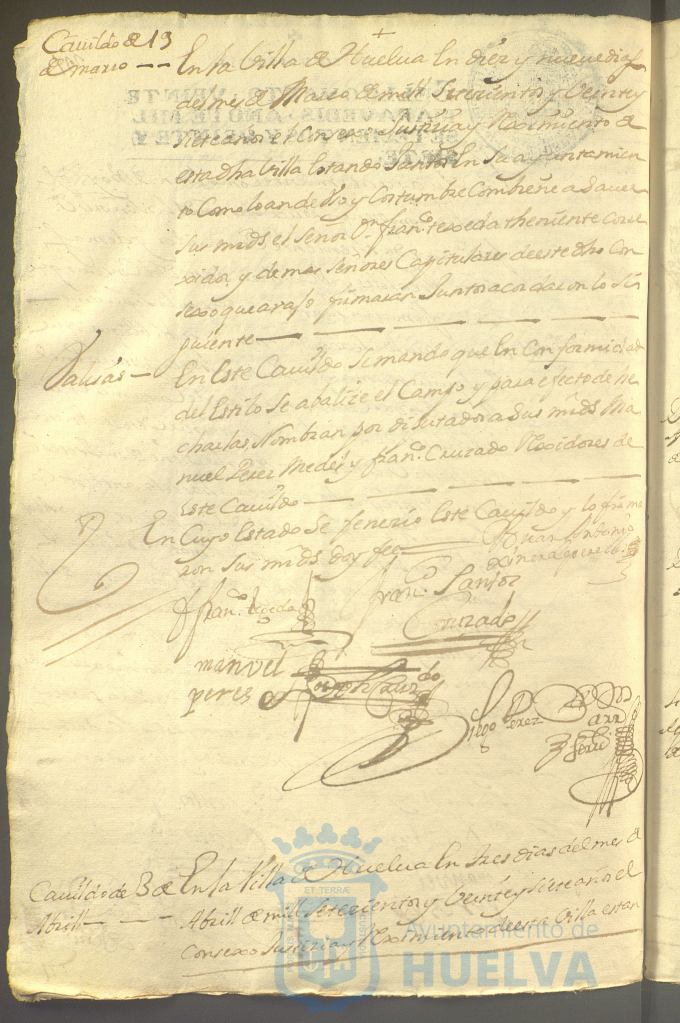 Cavildo de 19
de marzo
En la Villa de Huelva En diez y nueve dias
del mes de Marzo de mill Setecientos y Veinte y
siete años el Consexo Justicia y Reximiento de
esta dha Villa estando Juntos En su ayuntamien
to Como lo an de Vso y Costumbre Combiene a Saver
Sus mrds el Señor Dn. franco. texeda theniente Corre
xidor, y demas Señores Capitulares de este dho Con
sexo que avajo firmaran Juntos acordaron lo Si
guiente
En Este Cavildo Se mando que En Conformidad
del Estilo Se abalize el Campo y para efecto de he
charlas, Nombran por diputados a Sus mrds Ma
nuel Perez Medel y franco. Cruzado Rexidores de
Este Cavildo
En Cuyo Estado Se fenecio Este Cavildo y lo firma
ron Sus mrds doy fee
Juan Antonio
franco. texeda
franco. Santos
Cruzado
manuel
peres
Joseph Cruzdo
Diego Perez
Cavildo de 3 de
Abrill
En la Villa de Huelva En tres dias del mes de
Abrill de mill Setecientos y Veinte y Siete años el
Consexo Justicia y Reximiento de esta Villa estan
ET TERRÆ
Ayuntamiento de
HUELVA